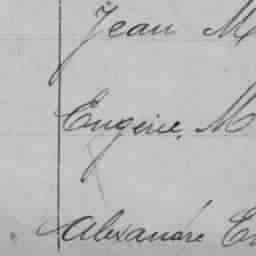 Jean M
Eugénie, M
Alexandre E